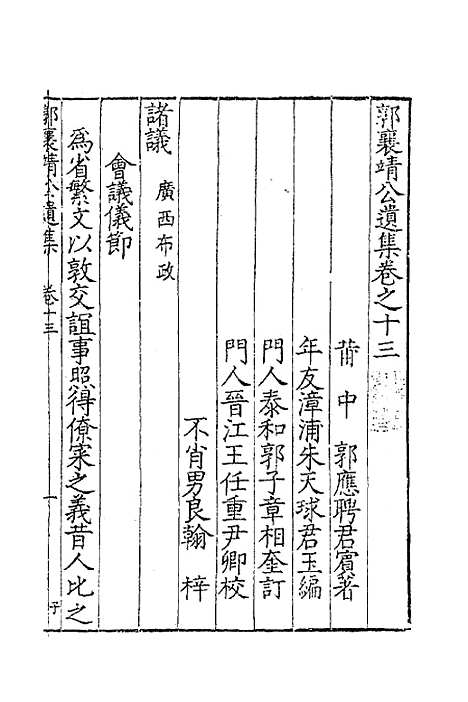 郭襄靖公遺集卷之十三
莆中　郭應聘君賓著
年友漳浦朱天球君玉編
門人泰和郭子章相奎訂
門人晉江王任重尹卿校
不肖男良翰　梓
諸議　廣西布政
會議儀節
為省繁文以敦交誼事照得僚寀之義昔人比之
郭襄靖公遺集　卷十三　一